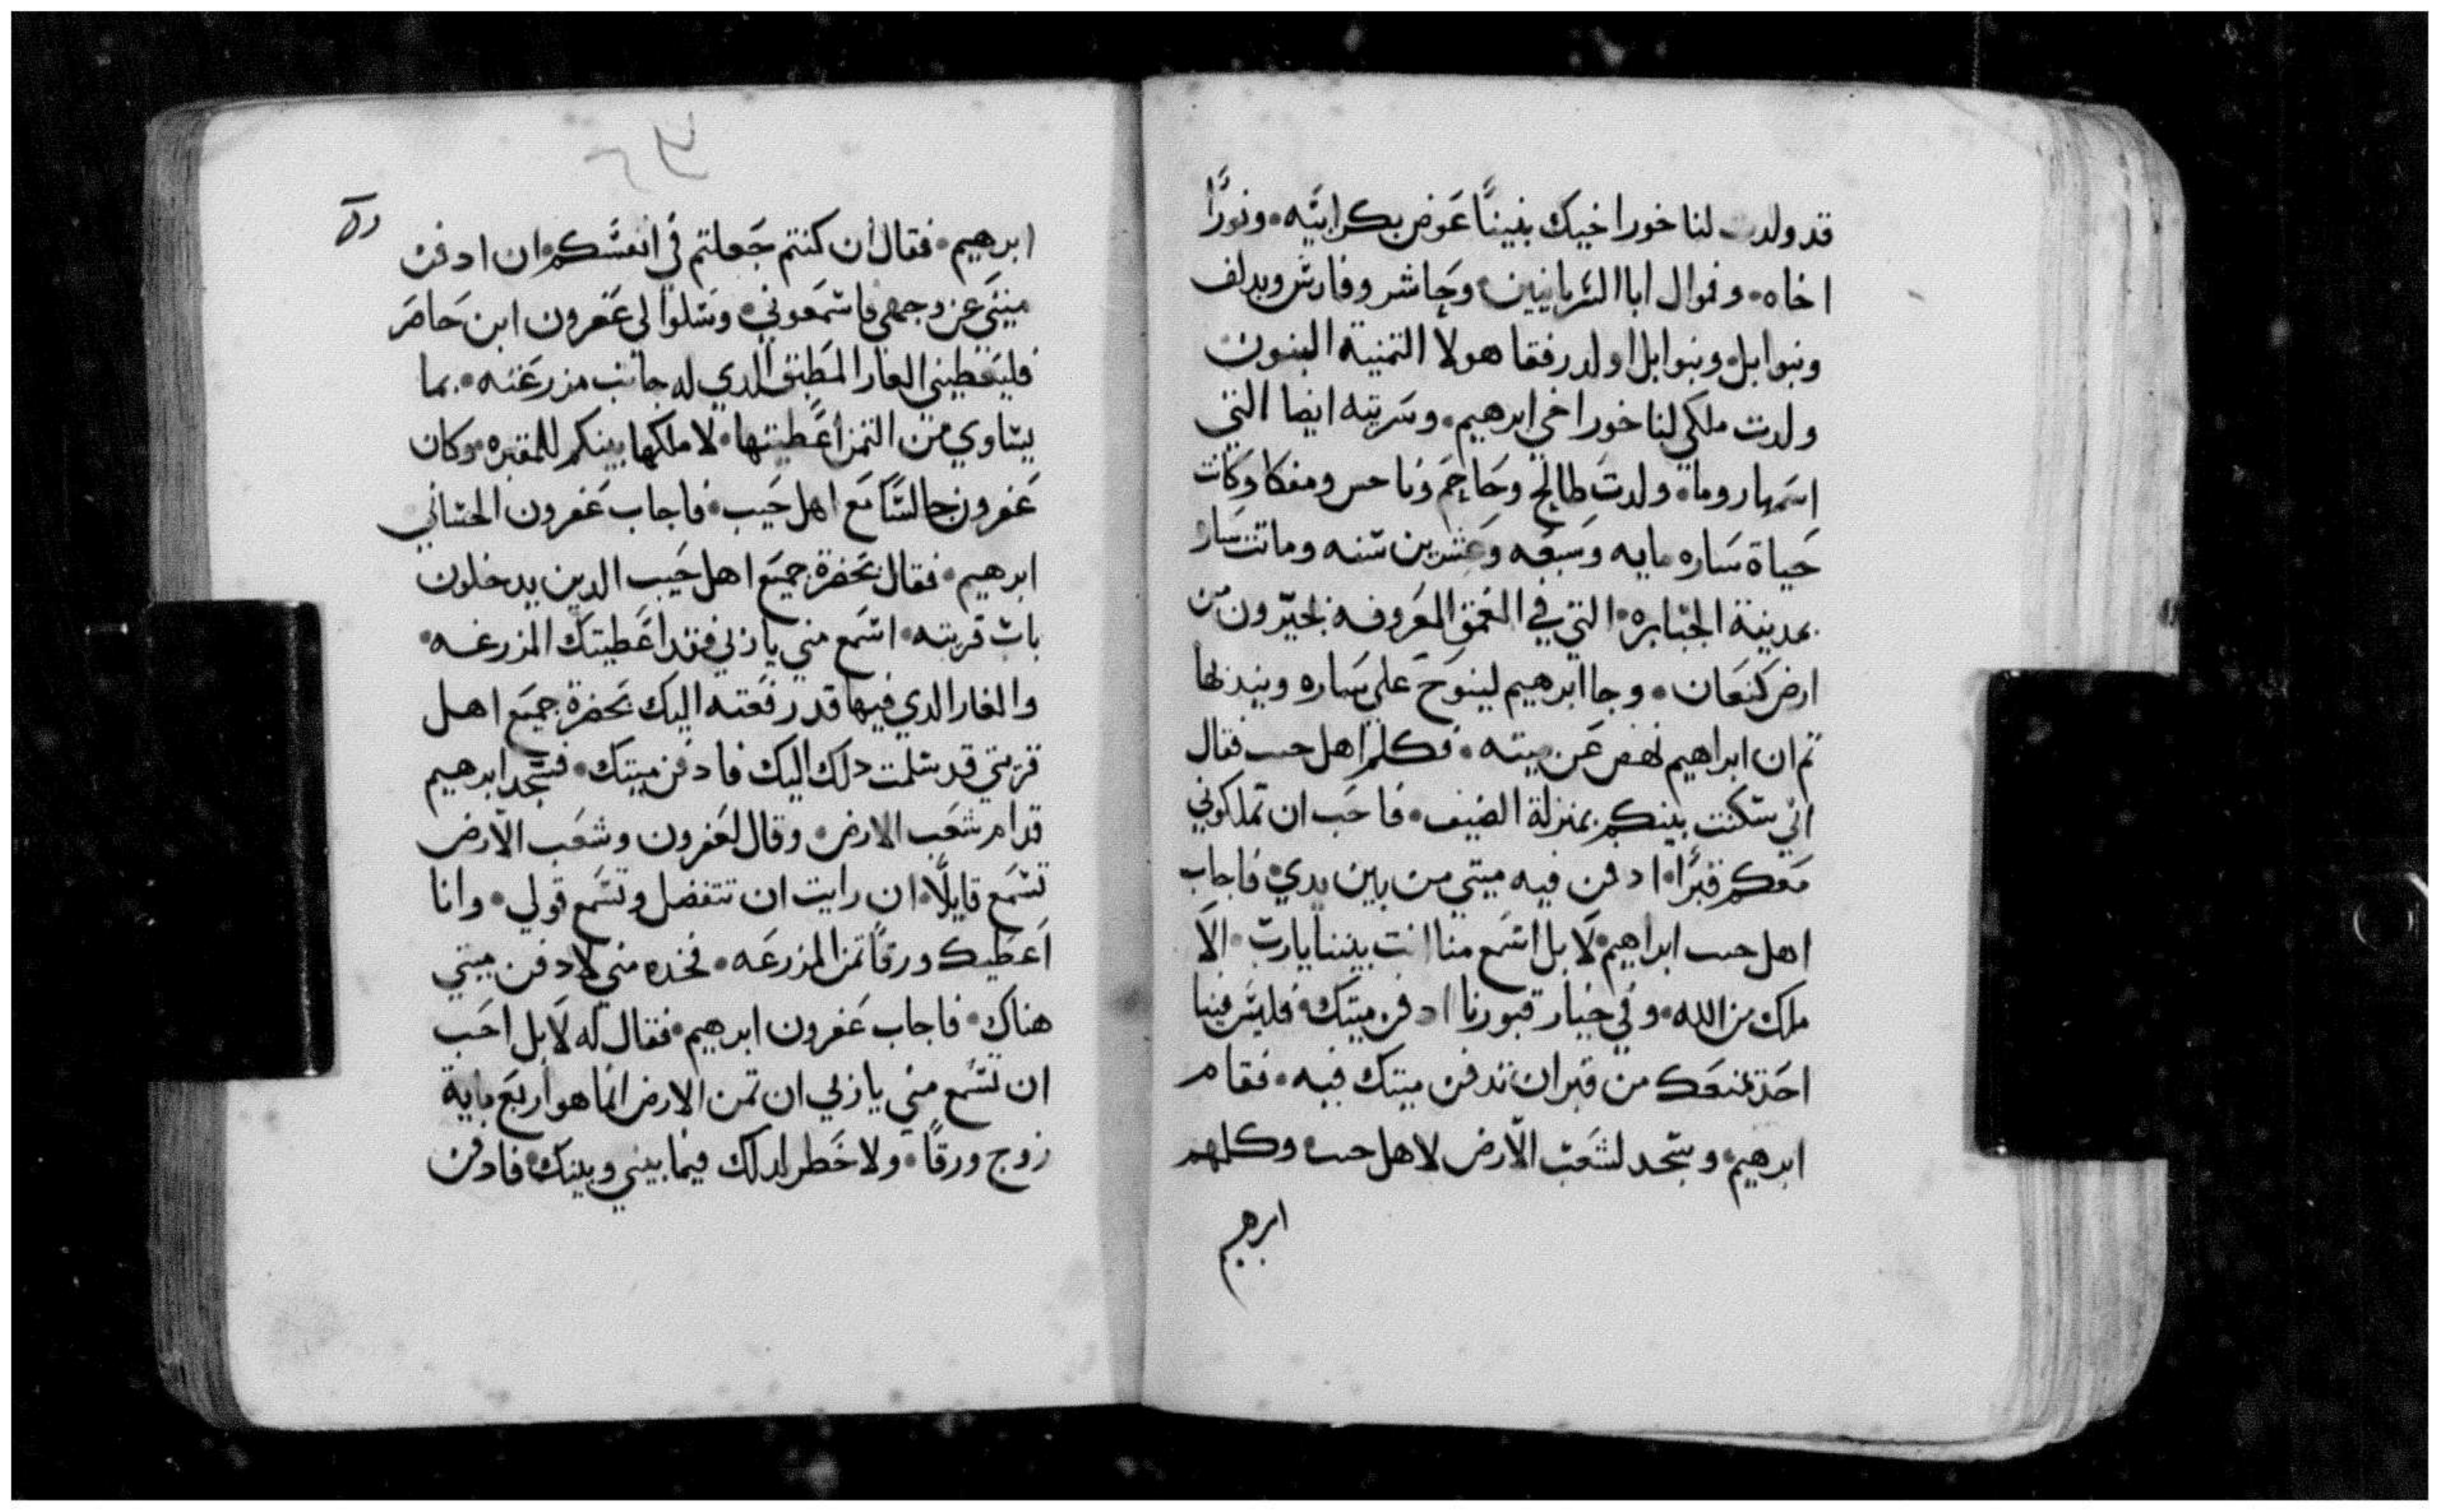 قد ولدت لنا خورا خيك بنينًا عوض بكر ابيه ونورًا
اخاه وفموال ابا السريانيين وحاشر وفارش ويدلف
وبتوابل وبتوابل اولد رفقا هولا التمنية البنون
ولدت ملكي لنا خورا خي ابرهيم وسريته ايضا التي
اسمها روما ولدت طالح وحاحم وناحس ومفكا وكانت
حياة ساره مايه وسبعه وعشرين سنه وماتت ساره
بمدينة الجبابره التي في العمق المعروفه بحبرون من
ارض كنعان وجا ابرهيم لينوح على ساره ويندبها
تم ان ابراهيم نهض عن ميته فكلم اهل حب فقال
اني سكنت بينكم بمنزلة الضيف فاحب ان تملكوني
معكم قبرًا ادفن فيه ميتي من بين يدي فاجاب
اهل حب ابراهيم لا بل اسمع منا انت بيننا يا رب الا
ملك من الله وفي خيار قبورنا ادفن ميتك فليس فينا
احد يمنعك من قبر ان تدفن ميتك فيه فقام
ابرهيم وسجد لشعب الارض لاهل حب وكلهم
ابرهيم
ابرهيم فقال ان كنتم جعلتم في انفسكم ان ادفن
ميتي عن وجهي فاسمعوني وسلوا لي عفرون ابن حاصر
فليعطيني الغار المطبق الدي له جانب مزرعته بما
يساوي من التمن اعطيتها لاملكها بينكم للمقبره وكان
عفرون جالسًا مع اهل حيب فاجاب عفرون الحتاني
ابرهيم فقال بحضرة جميع اهل حيب الدين يدخلون
باب قريته اسمع مني يا زلي فقد اعطيتك المزرعه
والغار الدي فيها قد رفعته اليك بحضرة جميع اهل
قريتي قد سلمت دلك اليك فادفن ميتك فسجد ابرهيم
قدام شعب الارض وقال لعفرون وشعب الارض
تسمع قايلًا ان رايت ان تتفضل وتسمع قولي وانا
اعطيك ورقًا تمن المزرعه فخده مني لادفن ميتي
هناك فاجاب عفرون ابرهيم فقال له لا بل احب
ان تسمع مني يا زلي ان تمن الارض انما هو اربع ماية
زوج ورقًا ولا خطر لدلك فيما بيني وبينك فادفن